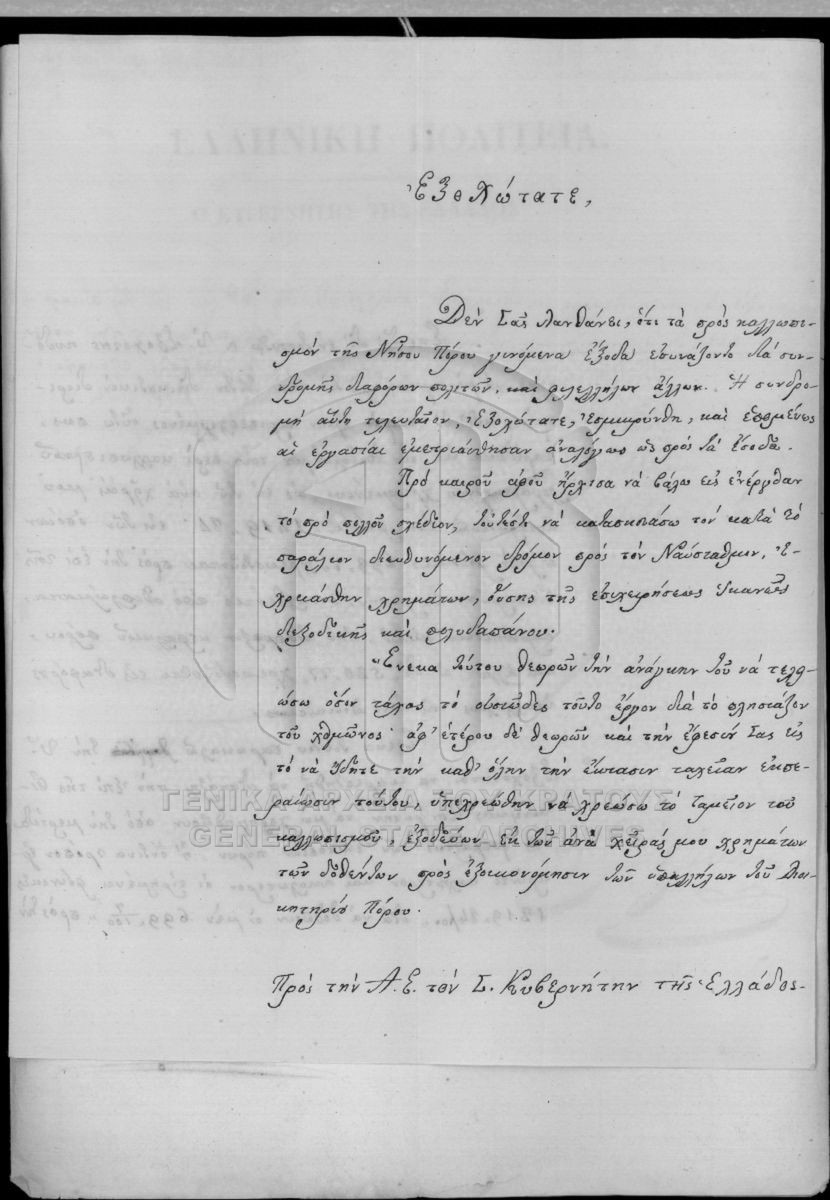 Ἐξοχώτατε,
Δὲν Σᾶς λανθάνει, ὅτι τὰ πρὸς καλλωπι-
σμὸν τῆς Νήσου Πόρου γινόμενα ἔξοδα ἐσυνάζοντο διὰ συν-
δρομῆς διαφόρων πολιτῶν, καὶ φιλελλήνων ἄλλων. Ἡ συνδρο-
μὴ αὕτη τελευταῖον, Ἐξοχώτατε, ἐσμικρύνθη, καὶ ἑπομένως
αἱ ἐργασίαι ἐμετριάσθησαν ἀναλόγως ὡς πρὸς τὰ ἔσοδα.
Πρὸ καιροῦ ἀφοῦ ἤρχισα νὰ βάλω εἰς ἐνέργειαν
τὸ πρὸ πολλοῦ σχέδιον, τουτέστι νὰ κατασκευάσω τὸν κατὰ τὸ
παράλιον διευθυνόμενον δρόμον πρὸς τὸν Ναύσταθμον, ἐ-
χρειάσθην χρημάτων, οὔσης τῆς ἐπιχειρήσεως ἱκανῶς
διεξοδικῆς καὶ πολυδαπάνου.
Ἕνεκα τούτου θεωρῶν τὴν ἀνάγκην τοῦ νὰ τελει-
ώσω ὅσον τάχος τὸ οὐσιῶδες τοῦτο ἔργον διὰ τὸ πλησιάζον
τοῦ χειμῶνος· ἀφ' ἑτέρου δὲ θεωρῶν καὶ τὴν ἔφεσίν Σας εἰς
τὸ νὰ ἴδητε τὴν καθ' ὅλην τὴν ἔκτασιν ταχεῖαν ἐκπε-
ραίωσιν τούτου, ὑπεχρεώθην νὰ χρεώσω τὸ ταμεῖον τοῦ
καλλωπισμοῦ, ἐξοδεύων ἐκ τῶν ἀνὰ χεῖράς μου χρημάτων
τῶν δοθέντων πρὸς ἐξοικονόμησιν τῶν ὑπαλλήλων τοῦ Διοι-
κητηρίου Πόρου.
Πρὸς τὴν Α. Ε. τὸν Σ. Κυβερνήτην τῆς Ἑλλάδος.
ΓΕΝΙΚΑ ΑΡΧΕΙΑ ΤΟΥ ΚΡΑΤΟΥΣ
GENERAL STATE ARCHIVES